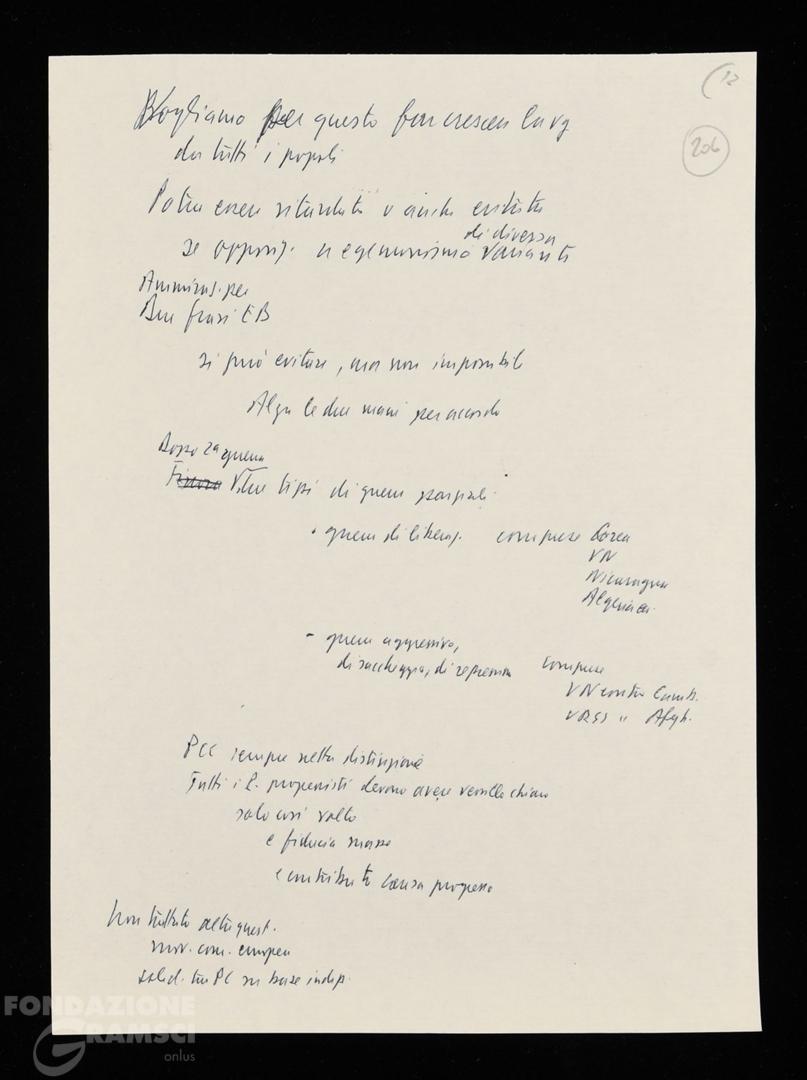 (12
206
Vogliamo per questo far crescere lavg
da tutti i popoli
Potrà essere ritardata o anche evitata
di diversa
se opposiz. a egemonismo varianti
Due frasi EB
si può evitare, ma non impossibile
le due mani per accordo
Dopo 2ª guerra
Finora Vdue tipi di guerre parziali
• guerra di liberaz. comprese Corea
VN
Nicaragua
Algeria ecc.
- guerra aggressiva,
di saccheggio, di repressione comprese
VN contro Camb.
URSS " Afgh.
PCC sempre netta distinzione
Tutti i P. progressisti devono avere chiaro
solo così
e fiducia masse
e contributo causa progresso
Non trattato altre quest.
mov. com. europeo
solid. tra PC su base indip.
FONDAZIONE
GRAMSCI
onlus